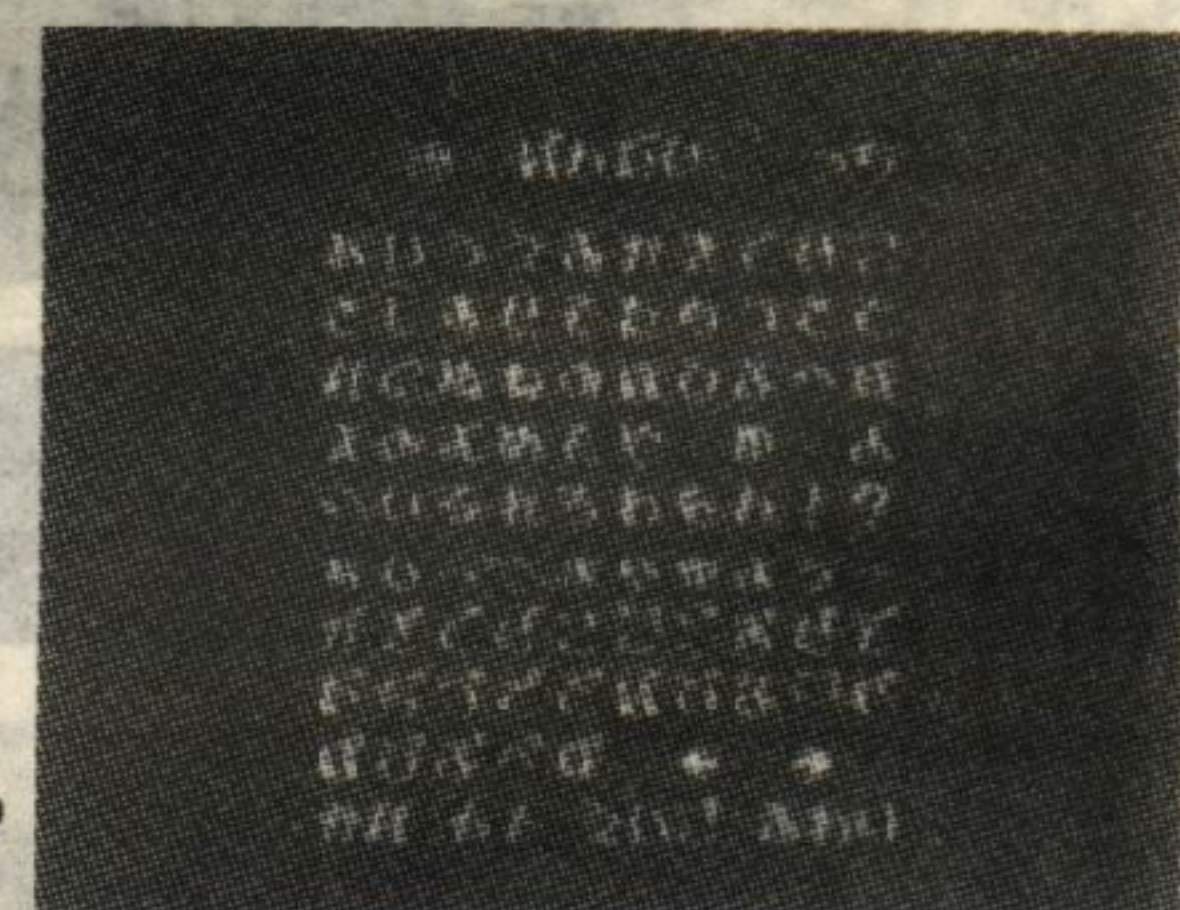 あいうえおかきくけこ
さしすせそたちつてと
なにぬねのはひふへほ
まみむめもや ゆ よ
らりるれろわをん！？
ぁぃぅぇぉゃゅょっ
がぎぐげござじずぜぞ
だぢづでどばびぶべぼ
ぱぴぷぺぽ ← →